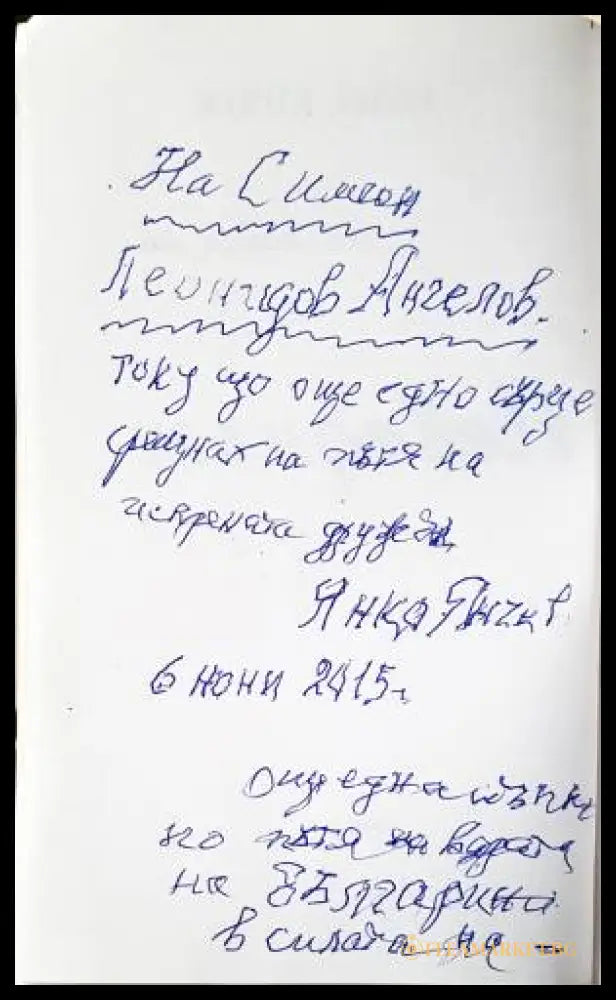 На Симеон
Леонидов Ангелов.
току що още едно сърце
срещнах на пътя на
искрената дружба
Янко
6 юони 2015г.
Още една стъпка
по пътя на вярата
на българина
в силата на -